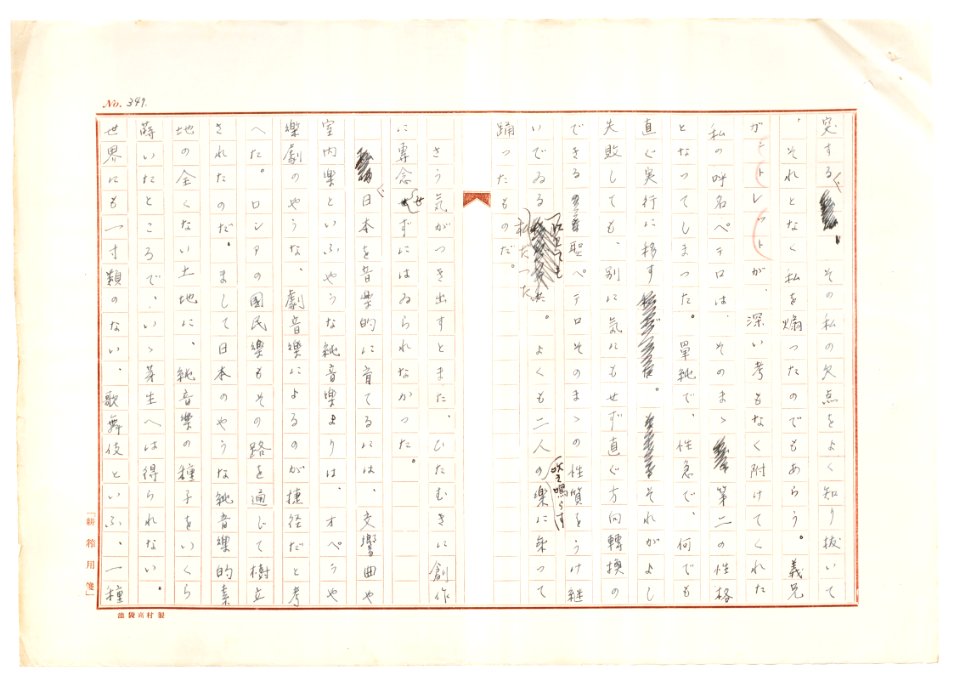 No. 399.
突する。その私の欠点をよく知り抜いて
、それとなく私を煽つたのでもあらう。義兄
がトレットが、深い考もなく附けてくれた
私の呼名ペテロは、そのまゝ第二の性格
となつてしまつた。單純で、性急で、何でも
直ぐ実行に移す。それがよし
失敗しても、別に気にもせず直ぐ方向轉換の
できる聖ペテロそのまゝの性質をうけ継
いでゐる。よくも二人の吹き鳴らす樂に乗つて
踊つたものだ。
さう気がつき出すとまた、ひたむきに創作
に専念せずにはゐられなかつた。
日本を音樂的に育てるには、交響曲や
室内樂といふやうな純音樂よりは、オペラや
樂劇のやうな、劇音樂によるのが捷径だと考
へた。ロシアの國民樂もその路を通じて樹立
されたのだ。まして日本のやうな純音樂的素
地の全くない土地に、純音樂の種子をいくら
蒔いたところで、いゝ芽生へは得られない。
世界にも一寸類のない、歌舞伎といふ、一種
「耕筰用箋」
池袋高村製